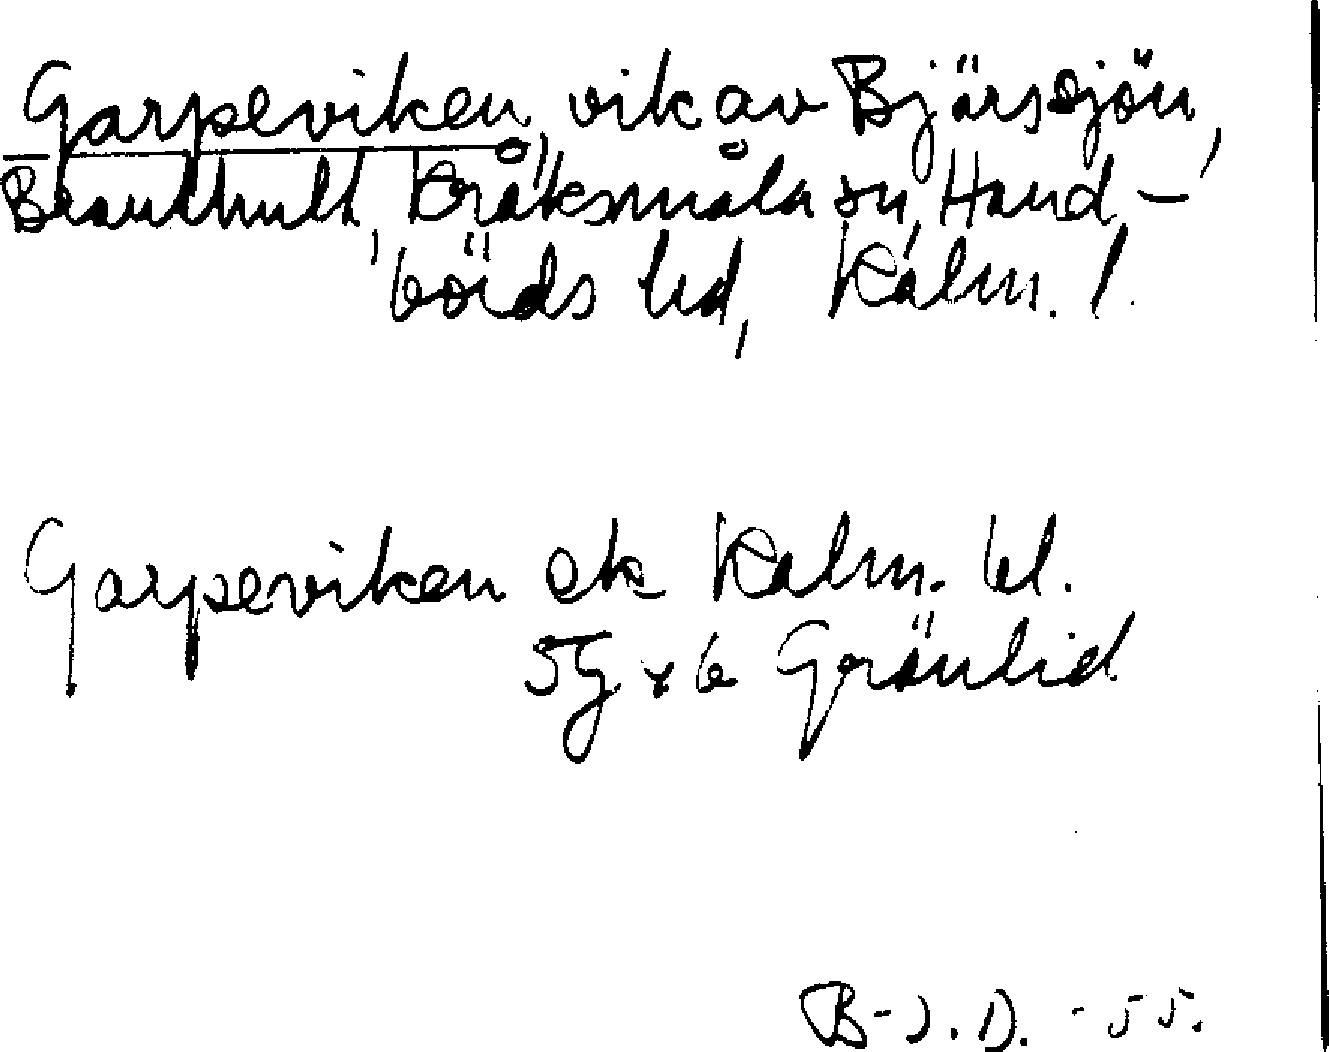 Garpeviken, vik av Bjärssjön,
Branthult, Kråksmåla sn, Hand-
börds hd, Kalm. l.
Garpeviken ek Kalm. bl.
5g x 6 Grönlid
B-J.D. -55.